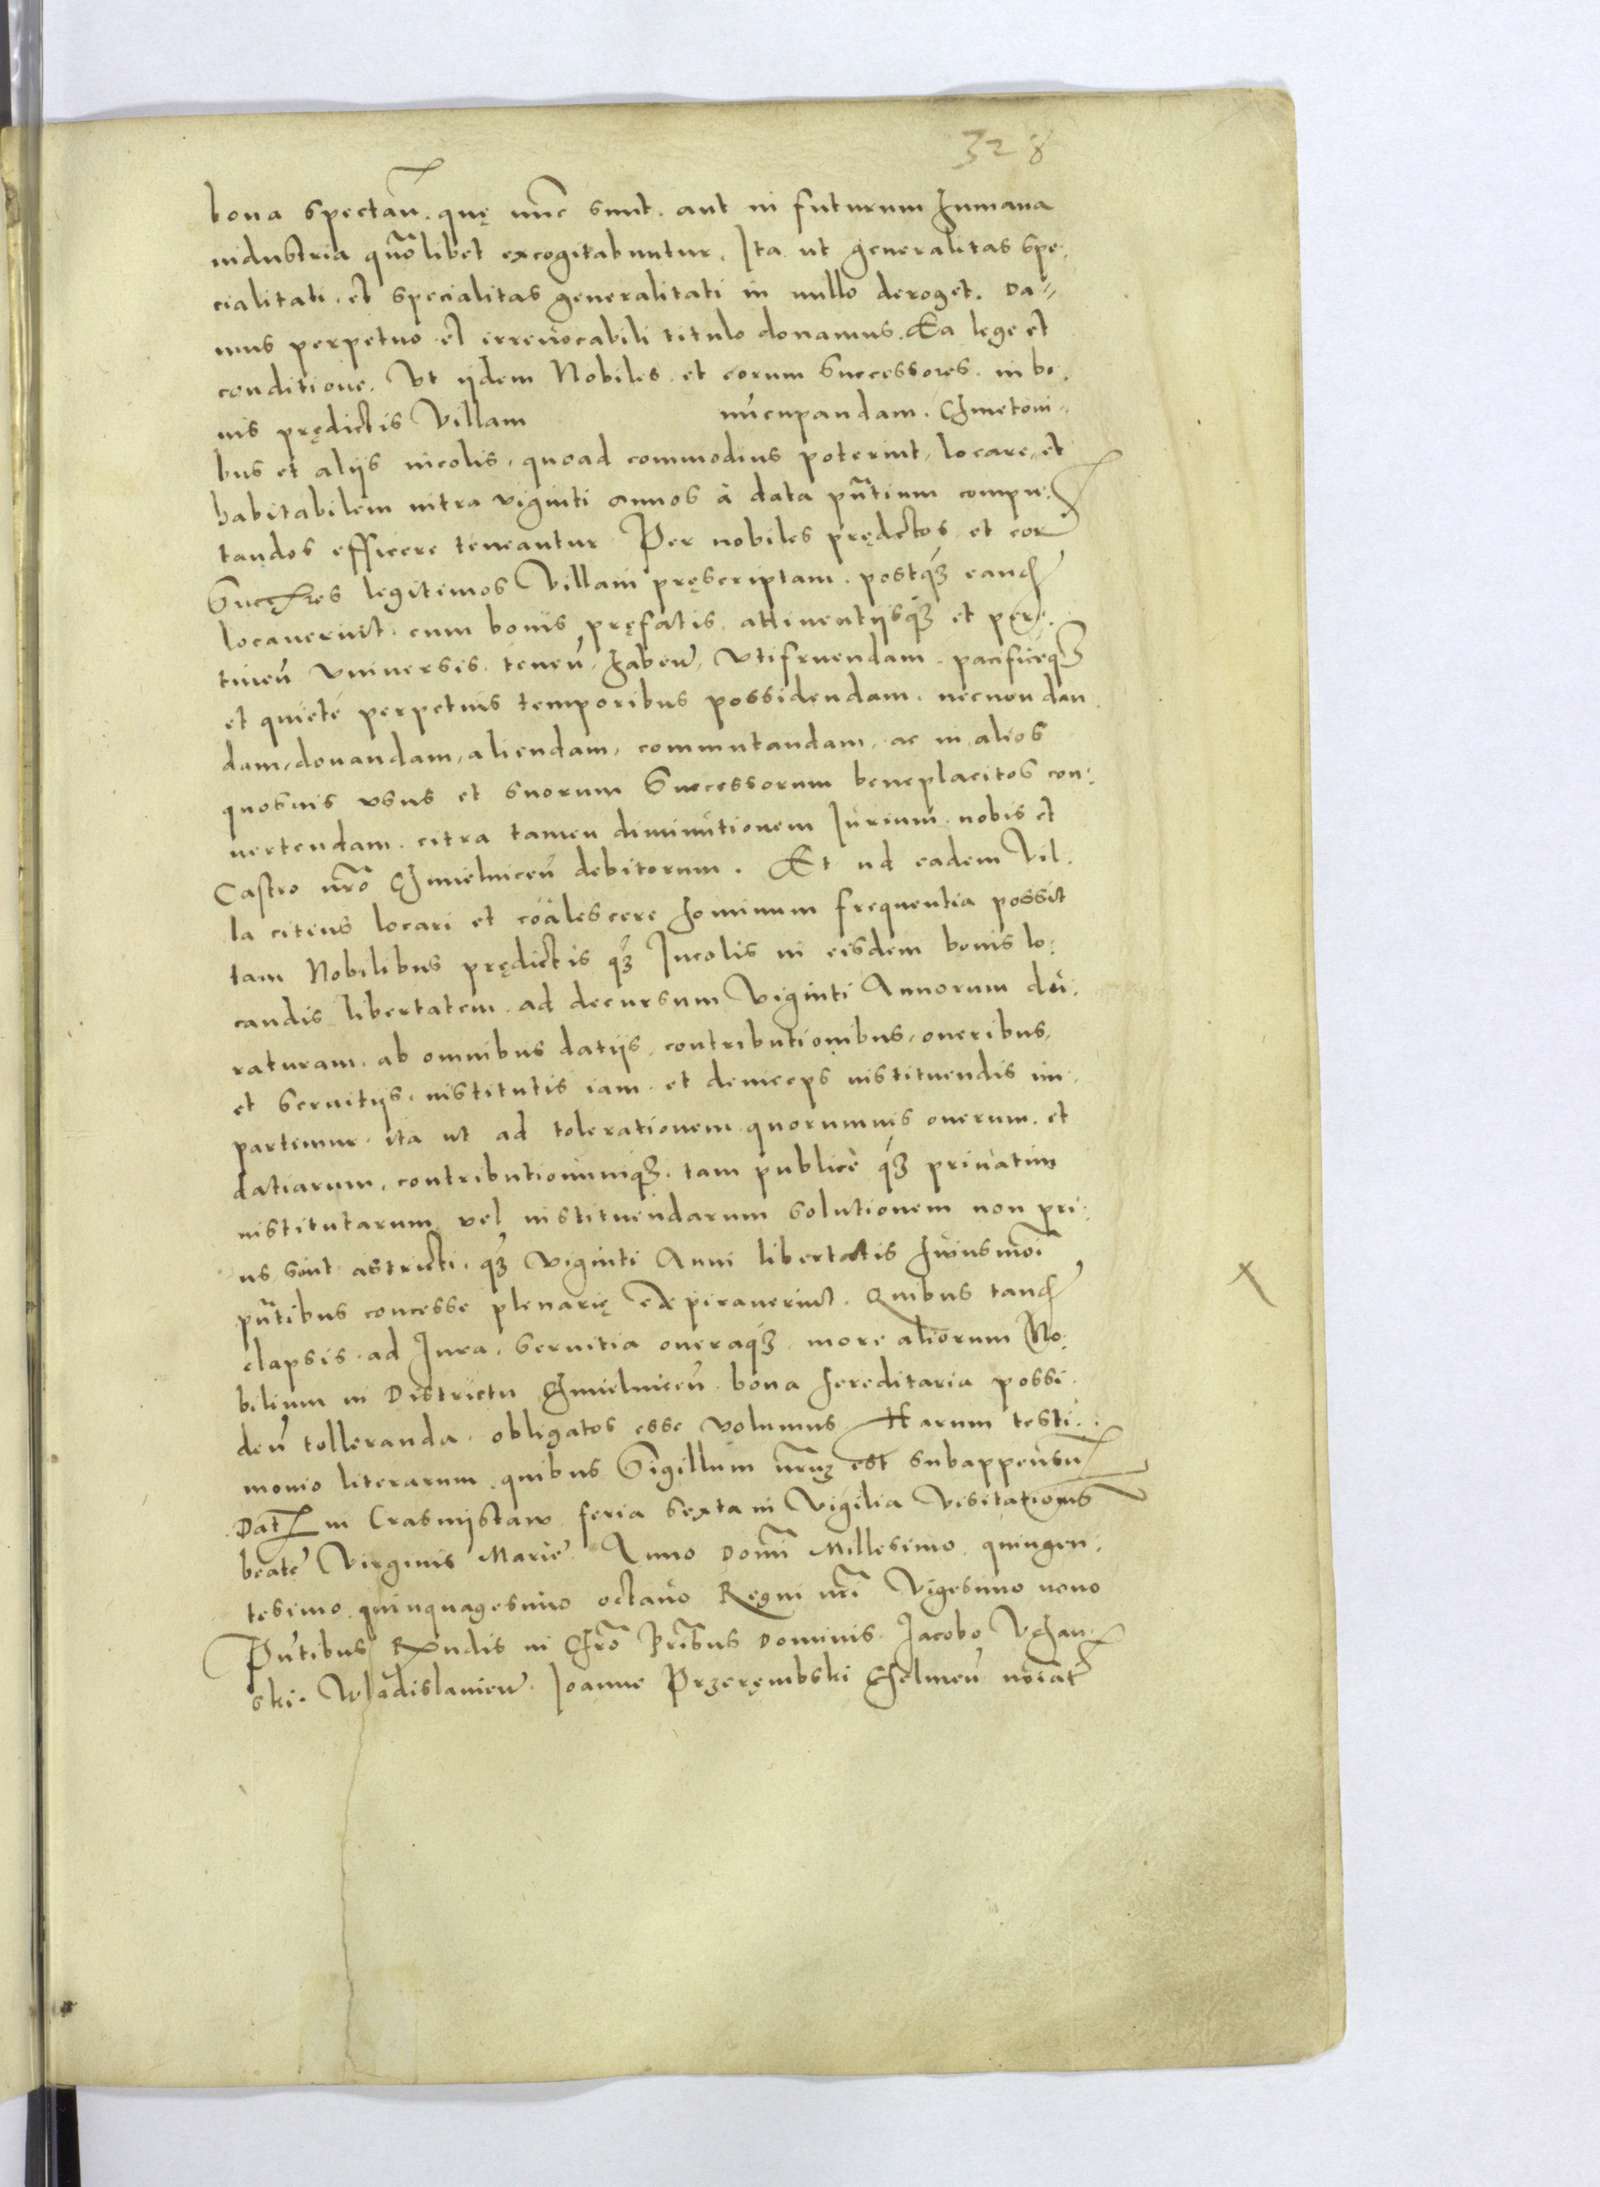 328
bona spectan̄. quę nūc sunt. aut in futurum humana
industria quōlibet excogitabuntur. Ita ut generalitas spe.
cialitati. et specialitas generalitati in nullo deroget. Da=
mus perpetuo et irreuocabili titulo donamus. Ea lege et
conditione. Ut ijdem Nobiles et eorum Successores. in bo.
nis prędictis Villam nūcupandam. Chmetoni=
bus et aliis incolis. quoad commodius poterint, locare, et
habitabilem intra viginti annos à data pn̄tium compu:
tandos efficere teneantur Per nobiles prędctos et eor
Succres legitimos Villam pręscriptam. postq̄ȝ eand
locauerint. cum bonis pręfatis. attinentijsq́ȝ et per.
tinen̄ vniuersis. tenen̄, haben̄, vtifruendam. pacificeq́ȝ
et quiete perpetuis temporibus possidendam. necnon dan
dam, donandam, aliendam, commutandam, ac in alios
quosuis vsus et suorum Successorum beneplacitos con:
uertendam. citra tamen diminutionem Iurium. nobis et
Castro nrō Chmielnicen̄ debitorum. Et ud eadem Vil.
la citius locari et coalescere hominum frequentia possit
tam Nobilibus prędictis q̄ȝ Incolis in eisdem bonis lo:
candis libertatem. ad decursum Viginti Annorum du:
raturam. ab omnibus datijs, contributionibus, oneribus,
et seruitijs. institutis iam. et deinceps instituendis im.
partimur. ita ut ad tolerationem quorumuis onerum. et
datiarum, contributionumq́ȝ. tam publicè q̄ȝ priuatim
institutarum vel instituendarum solutionem non pri:
us sint astricti. q̄ȝ viginti Anni libertatis huiusmōi
pn̄tibus concesse plenarię expirauerint. Quibus tand
elapsis. ad Iura. seruitia oneraq́ȝ. more aliorum No:
bilium in Districtu Chmielnicen̄ bona hereditaria possi.
den̄ tolleranda. obligatos esse volumus Harum testi:
monio literarum. quibus Sigillum nrūȝ est subappensū
Dat in Crasnijstaw feria sexta in Vigilia Visitationis
beate Virginis Marie Anno Domī Millesimo. quingen.
tesimo quinquagesimo octauo Regni nrī Vigesimo nono
Pn̄tibus Rn̄dis in Chrō Prībus Dominis. Jacobo Vchan.
ski. Wladislauien̄. Joanne Przerębski Chelmen̄ noīat
x